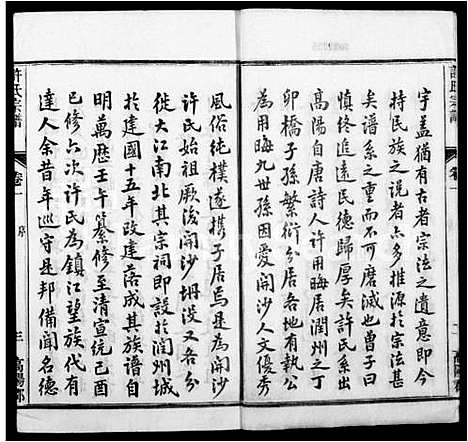 許氏宗譜
卷一
二
高陽郡
宇蓋猶有古者宗法之遺意即今
持民族論者亦多推源於宗法甚
矣譜系之重而不可磨滅也曾子曰
慎終追遠民德歸厚矣許氏系出
高陽自唐詩人許用晦居潤州之丁
卯橋子孫繁衍分居各地有執公
為用晦九世孫因愛開沙人文優秀
風俗純樸遂攜子居焉是為開沙
許氏始祖厥後開沙坍沒又各分
徙於大江南北其宗祠即於潤州城
於建國十五年改建落成其族譜自
明萬歷壬午纂修至清宣統己酉
已修六次許氏為鎮江望族代有
達人余昔年巡守是邦備聞名德
許氏宗譜
卷一
序
三
高陽郡